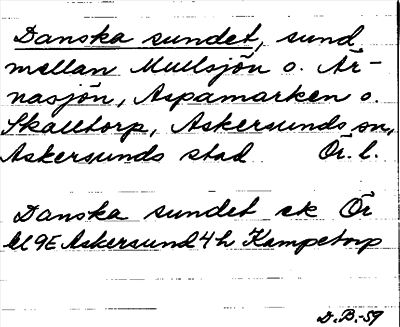 Danska sundet, sund
mellan Mullsjön o. Är-
nasjön, Aspamarken o.
Skalltorp, Askersunds sn,
Askersunds stad Ör. l.
Danska sundet ek Ör
9E Askersund 4h Kampetorp
D.B.-59